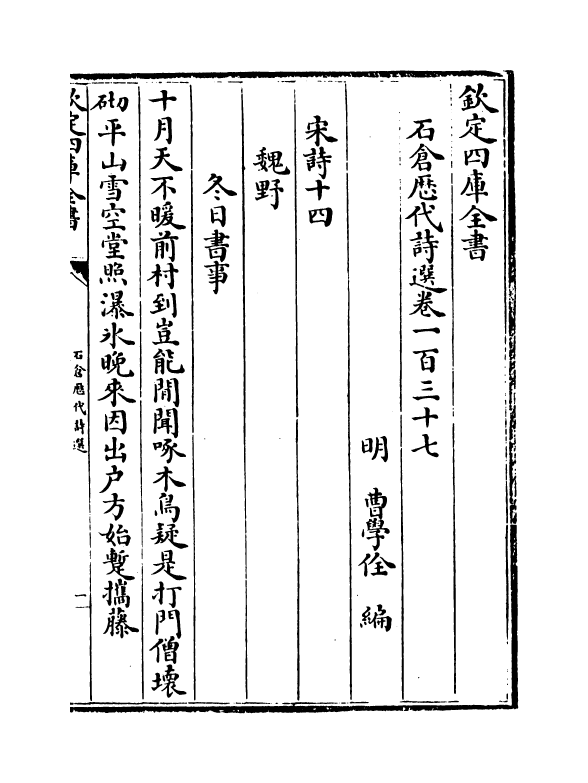 欽定四庫全書
石倉歴代詩選卷一百三十七
明 曹學佺 編
宋詩十四
魏野
冬日書事
十月天不暖前村到豈能閒聞啄木鳥疑是打門僧壊
砌平山雪空堂照瀑氷晚來因出户方始蹔攜藤
欽定四庫全書
石倉歷代詩選
一